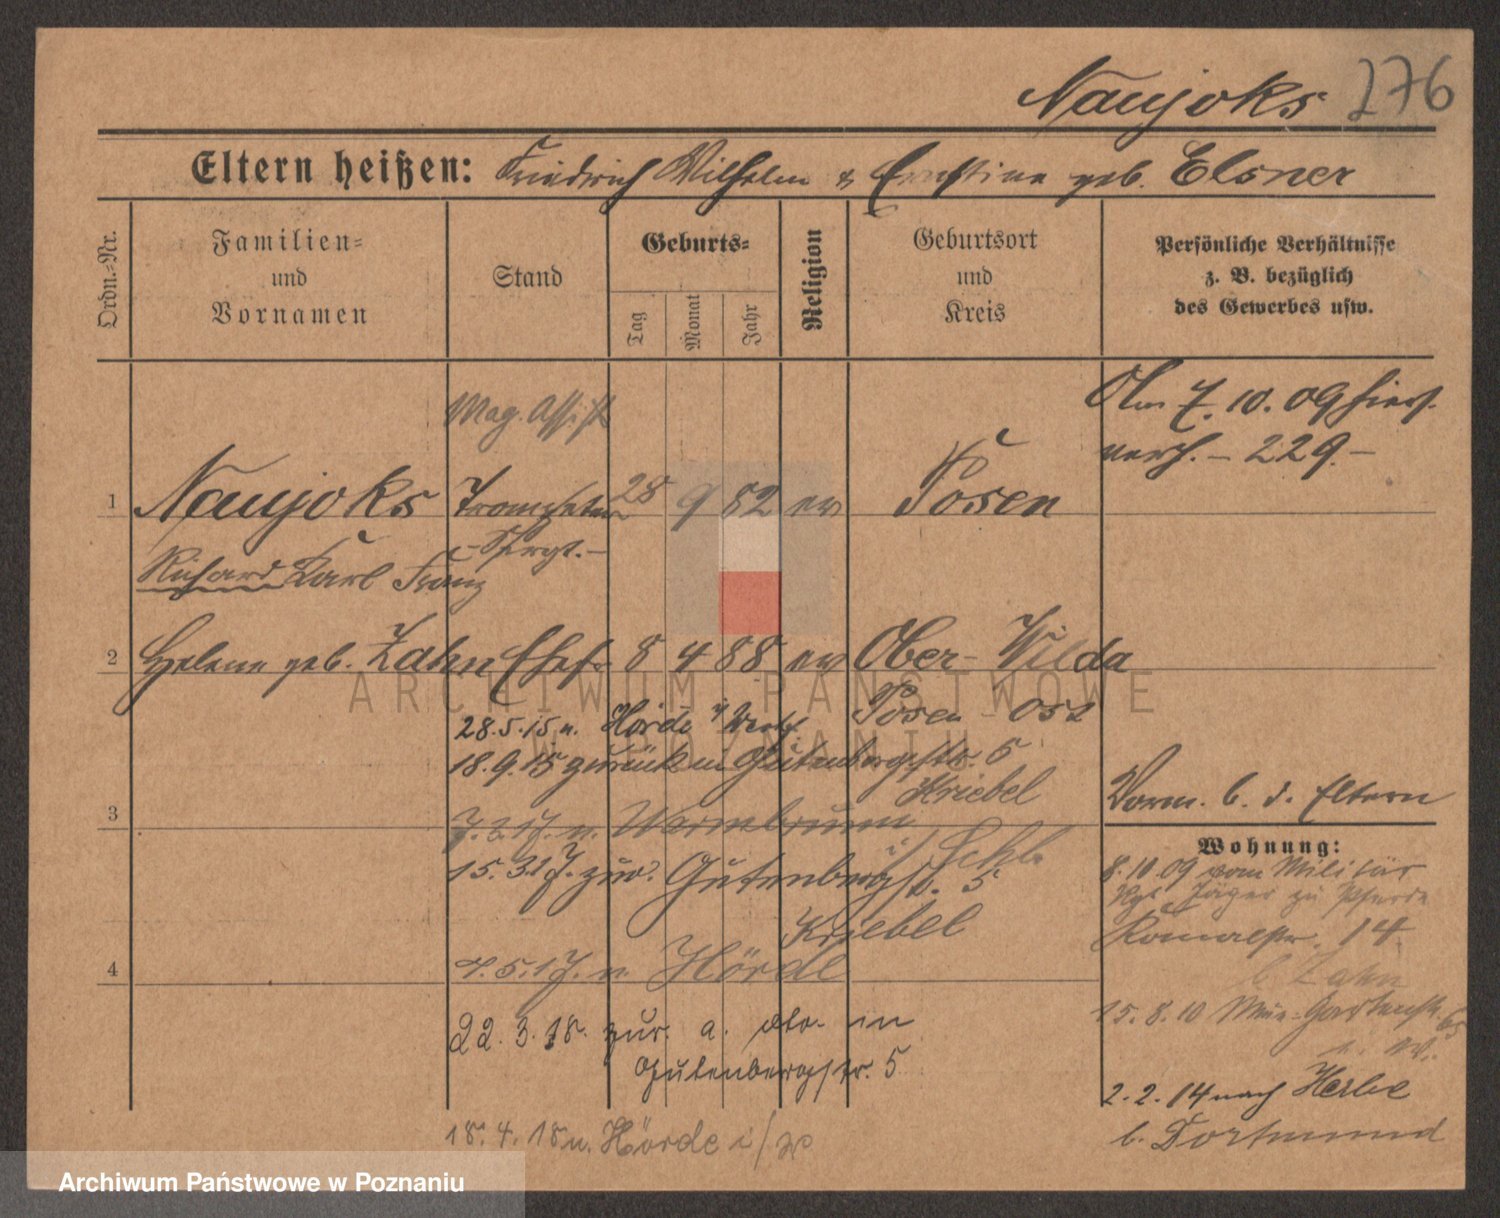 Naujoks 276
Eltern heißen: Friedrich Wilhelm & Ernstine geb. Elsner
Ordn.-Nr.
Familien-
und
Vornamen
Stand
Geburts-
Tag
Monat
Jahr
Religion
Geburtsort
und
Kreis
Persönliche Verhältnisse
z. B. bezüglich
des Gewerbes usw.
Mag. Assist
Am 7. 10. 09 hier
verh. – 229. –
1 Naujoks Trompeter 28 9 82 ev Posen
– Sergt. –
Richard Karl Franz
2 Helene geb. Zahn Ehefr. 8 4 88 ev Ober-Wilda
Posen-Ost
28.5.15 n. Hörde i/ Westf.
18.9.15 zurück in Gutenbergstr. 5
Kriebel
Vorm. b. d. Eltern
3
n. Warmbrunn
i/ Schl.
15. 3.17. zur. Gutenbergstr. 5
Kriebel
4
4.5.17. n. Hörde
22. 3. 18. zur. a. do. in
Gutenbergstr. 5
18. 4. 18 n. Hörde i/W
Wohnung:
8.10 09 vom Militär
Rgt. Jäger zu Pferde
14
b Zahn
15. 8. 10 Gartenstr.
2. 2. 14 nach
b. Dortmund
ARCHIWUM PAŃSTWOWE
W POZNANIU
Archiwum Państwowe w Poznaniu